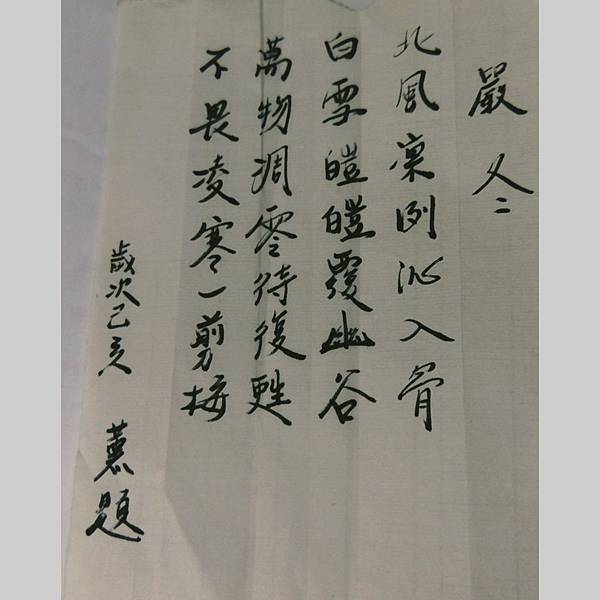 嚴冬
北風凜冽沁入骨
白雪皚皚覆幽谷
萬物凋零待復甦
不畏凌寒一剪梅
歲次己亥 蕙題